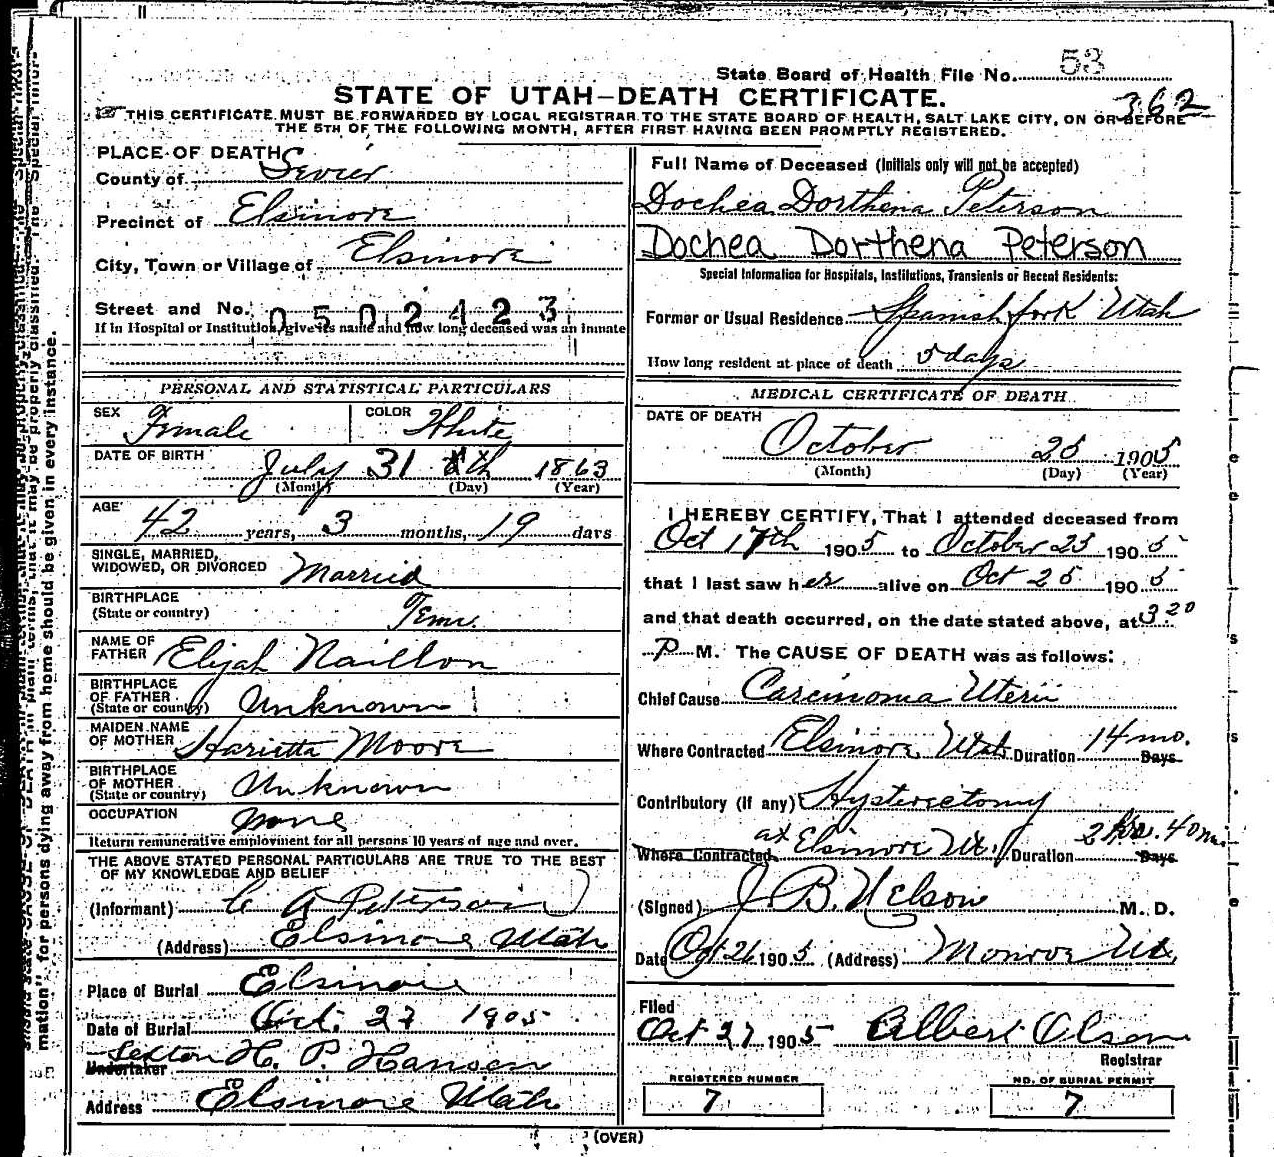 State Board of Health File No. 53
STATE OF UTAH-DEATH CERTIFICATE.
362
THIS CERTIFICATE MUST BE FORWARDED BY LOCAL REGISTRAR TO THE STATE BOARD OF HEALTH, SALT LAKE CITY, ON OR BEFORE
THE 5TH OF THE FOLLOWING MONTH, AFTER FIRST HAVING BEEN PROMPTLY REGISTERED.
PLACE OF DEATH
County of Sevier
Precinct of Elsinore
City, Town or Village of Elsinore
Street and No. 0502423
If in Hospital or Institution, give its name and how long deceased was an inmate
PERSONAL AND STATISTICAL PARTICULARS
SEX Female COLOR White
DATE OF BIRTH July 31 th 1863
(Month) (Day) (Year)
AGE 42 years, 3 months, 19 days
SINGLE, MARRIED,
WIDOWED, OR DIVORCED Married
BIRTHPLACE
(State or country) Tenn.
NAME OF
FATHER Elijah Naillon
BIRTHPLACE
OF FATHER
(State or country) Unknown
MAIDEN NAME
OF MOTHER Harietta Moore
BIRTHPLACE
OF MOTHER
(State or country) Unknown
OCCUPATION none
Return remunerative employment for all persons 10 years of age and over.
THE ABOVE STATED PERSONAL PARTICULARS ARE TRUE TO THE BEST
OF MY KNOWLEDGE AND BELIEF
(Informant) C A Peterson
(Address) Elsinore Utah
Place of Burial Elsinore
Date of Burial Oct. 27 1905
Sexton H. P. Hansen
Undertaker
Address Elsinore Utah
Full Name of Deceased (Initials only will not be accepted)
Dochea Dorthena Peterson
Dochea Dorthena Peterson
Special Information for Hospitals, Institutions, Transients or Recent Residents:
Former or Usual Residence Spanish fork Utah
How long resident at place of death 5 days
MEDICAL CERTIFICATE OF DEATH
DATE OF DEATH
October 25 1905
(Month) (Day) (Year)
I HEREBY CERTIFY, That I attended deceased from
Oct 17th 1905 to October 25 1905
that I last saw her alive on Oct 25 1905
and that death occurred, on the date stated above, at 3.20
P M. The CAUSE OF DEATH was as follows:
Chief Cause Carcinoma Uterii
Where Contracted Elsinore Utah Duration 14 mo. Days
Contributory (If any) Hysterectomy
Where Contracted at Elsinore Ut. Duration 2 hr. 40 m. Days
(Signed) J B. Nelson M. D.
Date Oct 26 1905 (Address) Monroe Ut.
Filed
Oct 27 1905 Albert Olson
Registrar
REGISTERED NUMBER
7
NO. OF BURIAL PERMIT
7
(OVER)
mation" for persons dying away from home should be given in every instance.